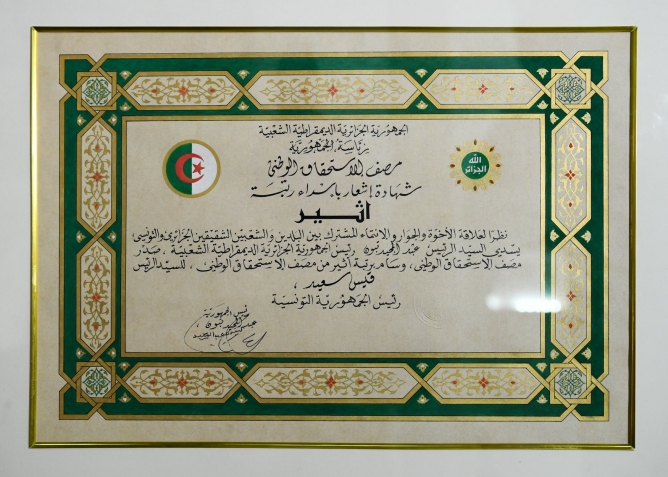 الجمهورية الجزائرية الديمقراطية الشعبية
رئاسة الجمهورية
مصف الاستحقاق الوطني
شهادة إشعار بإسداء رتبة
اثير
نظرا لعلاقة الأخوة والجوار والانتماء المشترك بين البلدين والشعبين الشقيقين الجزائري والتونسي
يسدي السيد الرئيس عبد المجيد تبون رئيس الجمهورية الجزائرية الديمقراطية الشعبية ، صدر
مصف الاستحقاق الوطني، وسام برتبة اثير من مصف الاستحقاق الوطني، للسيد الرئيس
قيس سعيد ،
رئيس الجمهورية التونسية
رئيس الجمهورية
عبد المجيد تبون
الله
الجزائر